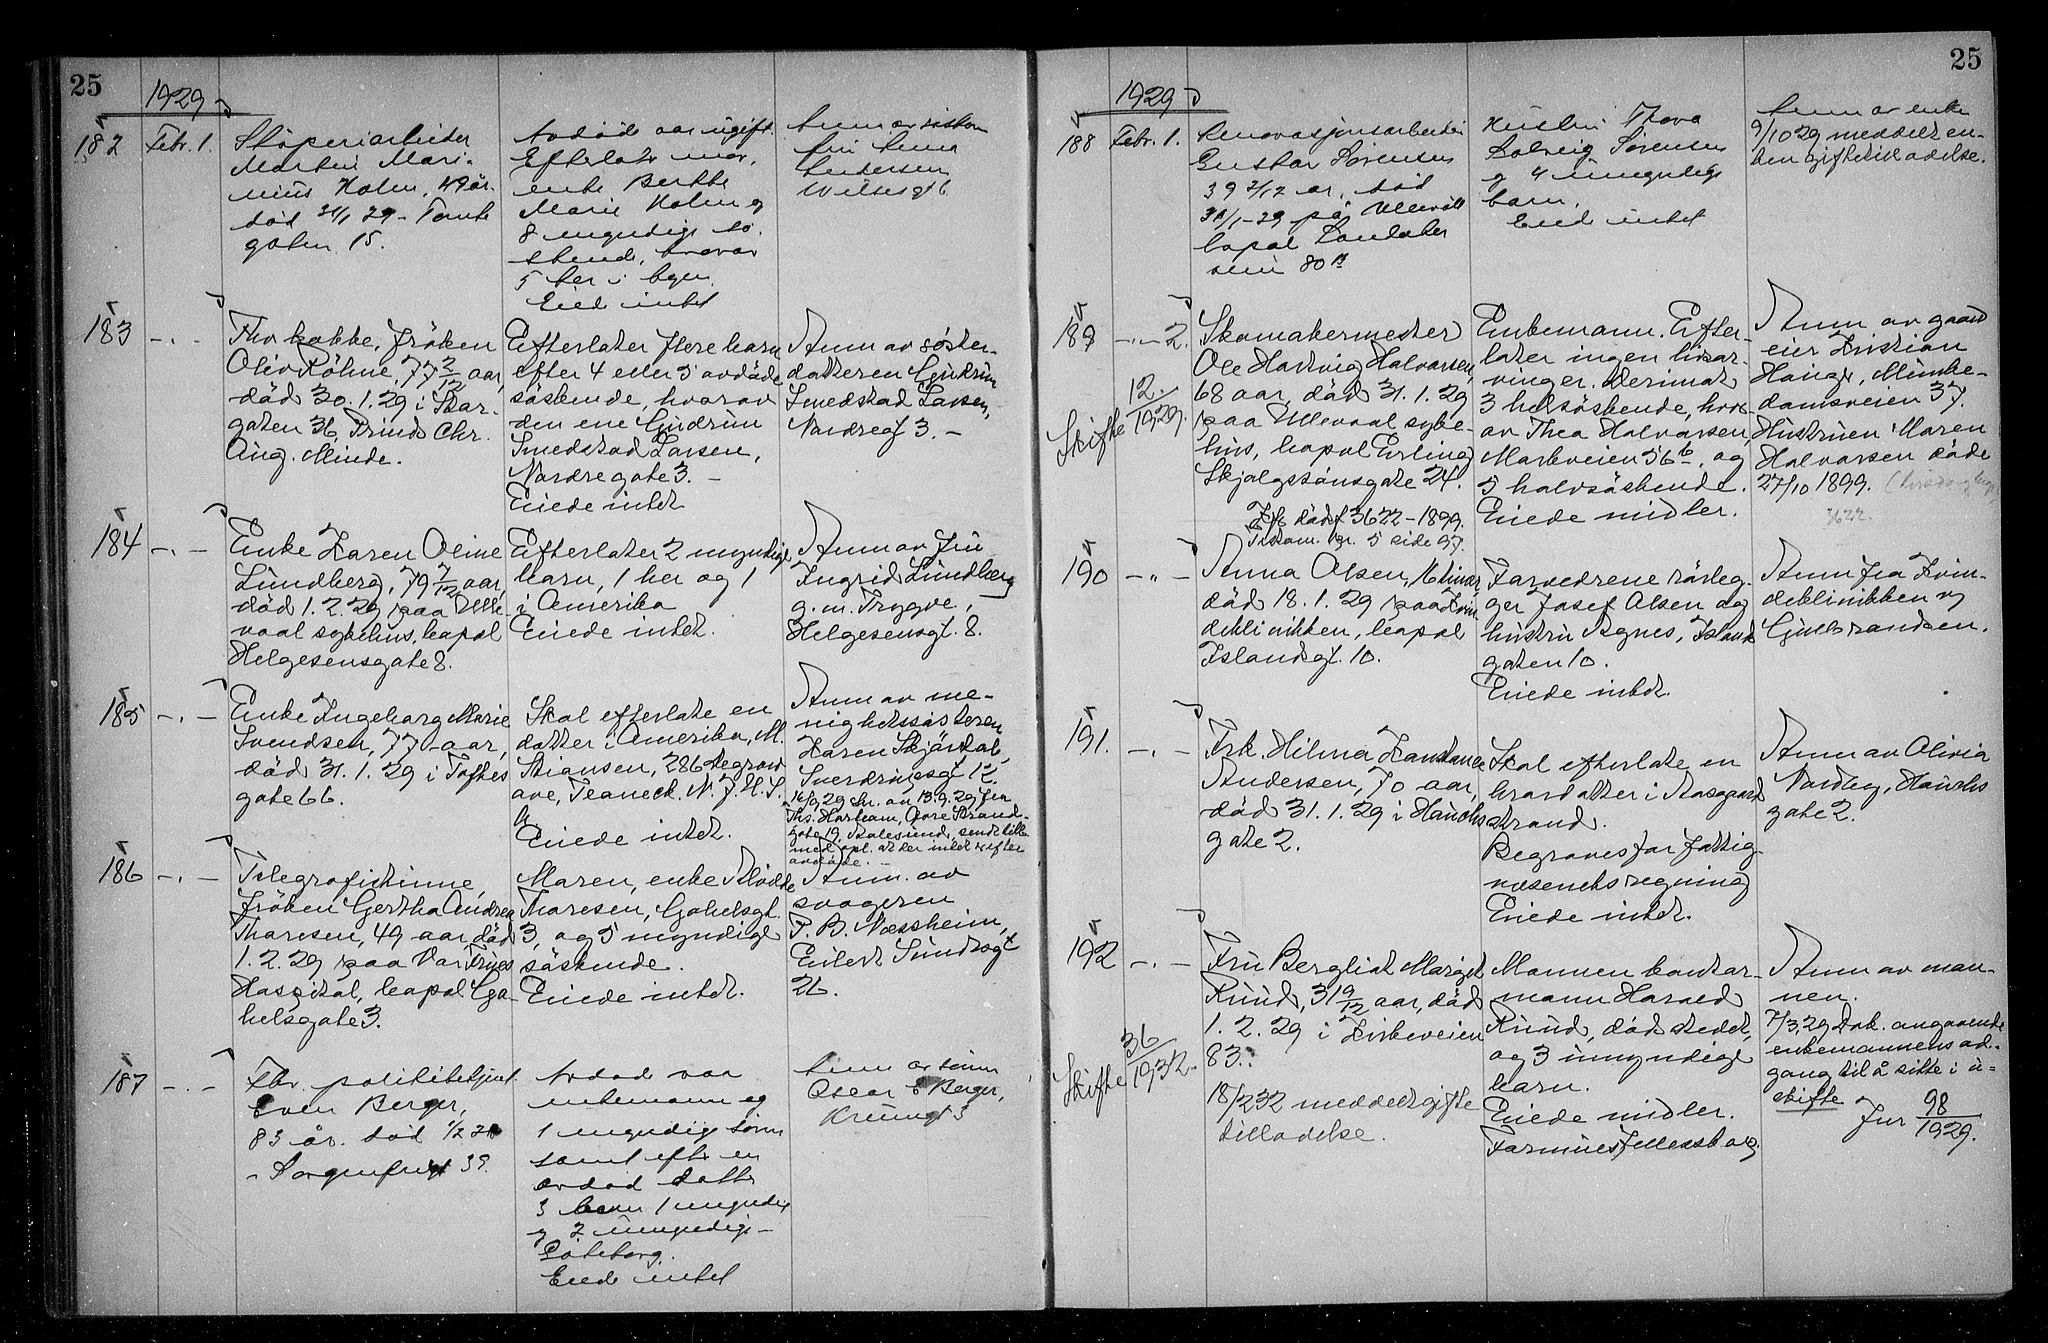 25
1929
182 Febr. 1. Støperiarbeider
Martin Mari-
nius Holm, 49 år.
død 31/1 29 - Tomte
gaten 15.
Avdøde var ugift.
Efterlot mor,
enke Berthe
Marie Holm og
8 myndige sø-
skende, hvorav
5 her i byen.
Eied intet
Anm av søsteren
fru Anna
Andersen
Wilsesgt 6
183 -.- Fhv kokke, frøken
Oliv Röhne, 77 2/12 aar,
død 30.1.29 i Stor-
gaten 36, Prinds Chr.
Aug. Minde.
Efterlater flere barn
efter 4 eller 5 avdøde
søskende, hvorav
den ene Gudrun
Smedstad Larsen,
Nordregate 3. -
Eiede intet
Anm av søster-
datteren Gudrun
Smedstad Larsen,
Nordregt 3. -
184 -.- Enke Karen Oline
Lundberg, 79 7/12 aar,
død 1.2.29 paa Ulle-
vaal sykehus, bopæl
Helgesensgate 8.
Efterlater 2 myndige
barn, 1 her og 1
i Amerika
Eiede intet.
Anm av fru
Ingrid Lundberg
g.m. Trygve,
Helgesensgt. 8.
185 -.- Enke Ingeborg Marie
Svendsen, 77 aar,
død 31.1.29 i Toftes
gate 66.
Skal efterlate en
datter i Amerika, M.
Stiansen, 286
ave, Teaneck. N.J. U.S.
A
Eiede intet.
Anm av me-
nighetssøsteren
Karen Skjørdal,
Sverdrupsgt 12.
16/9 29 skr. av 13.9.29 fra
Ths. Horteam, Øvre Strand-
gate 19 Aalesund, sendt tilb.
med opl. at der intet er efter
avdøde. -
186 -.- Telegrafistinne,
frøken Gertha Andrea
Thoresen, 49 aar, død
1.2.29 paa Vor Frues
Hospital, bopæl Ga-
belsgate 3.
Moren, enke
Thoresen, Gabelsgt.
3, og 5 myndige
søskende.
Eiede intet.
Anm. av
svogeren
P. B. Næssheim,
Eilert Sundtsgt
26.
187 -.- Fhv. politibetjent
Sven Berger,
83 år. død 1/2 29
- Sorgenfrigt 39.
Avdøde var
enkemann og
1 myndig sønn
samt efter en
avdød datter
3 barn 1 myndig
og 2 umyndige -
Göteborg.
Eiede intet
Anm av sønnen
Oscar E Berger,
Krumgt 3
25
1929
188 Febr. 1. Renovasjonsarbeider
Gustav Sørensen
39 2/12 ar, død
31/1-29 på Ullevål
bopæl Sandaker
veien 80 B
Hustru Thora
Solveig Sørensen
og 4 umyndige
barn.
Eied intet
Anm av enke
9/10 29 meddelt en-
ken giftetilladelse.
189 -.- 2. Skomakermester
Ole Hartvig Halvorsen,
68 aar, død 31.1.29
paa Ullevaal syke-
hus, bopæl Erling
Skjalgssönsgate 24.
Skifte 12./1929.
Frk dødsf 3622-1899.
Testam. pr. 5 side 97.
Enkemann. Efter-
later ingen livsar-
vinger. Derimot
3 helsøskende, hvor-
av Thea Halvorsen,
Markveien 56 b, og
5 halvsøskende.
Eiede midler.
Anm av gaard
eier Kristian
Hauger, Munke-
damsveien 37.
Hustruen Maren
Halvorsen døde
27/10 1899.
3622.
190 -.- Anna Olsen, 16 timer,
død 18.1.29 paa Kvin
deklinikken, bopæl
Islandsgt. 10.
Forældrene rørleg-
ger Josef Olsen og
hustru Agnes, Islands
gaten 10.
Eiede intet.
Anm fra Kvin-
deklinikken v
Gulbrandsen.
191. -.- Frk. Hilma Konstance
Andersen, 70 aar,
død 31.1.29 i Hauchs
gate 2.
Skal efterlate en
brordatter i Aasgaard
strand.
Begraves for fattig-
væsenets regning
Eiede intet.
Anm av Olivia
Nordby, Hauchs
gate 2.
192 -.- Fru Bergliot Margit
Ruud, 31 9/12 aar, død
1.2.29 i Kirkeveien
83.
Skifte 36/1932.
18/2 32 meddelt gifte
tilladelse.
Mannen kontor-
mann Harald
Ruud, død stedet,
og 3 umyndige
barn.
Eiede midler.
Formues fellesskap.
Anm av man-
nen.
7/3.29 Dok. angaaende
enkemannens ad-
gang til å sitte i u-
skifte
Jnr 98/1929.